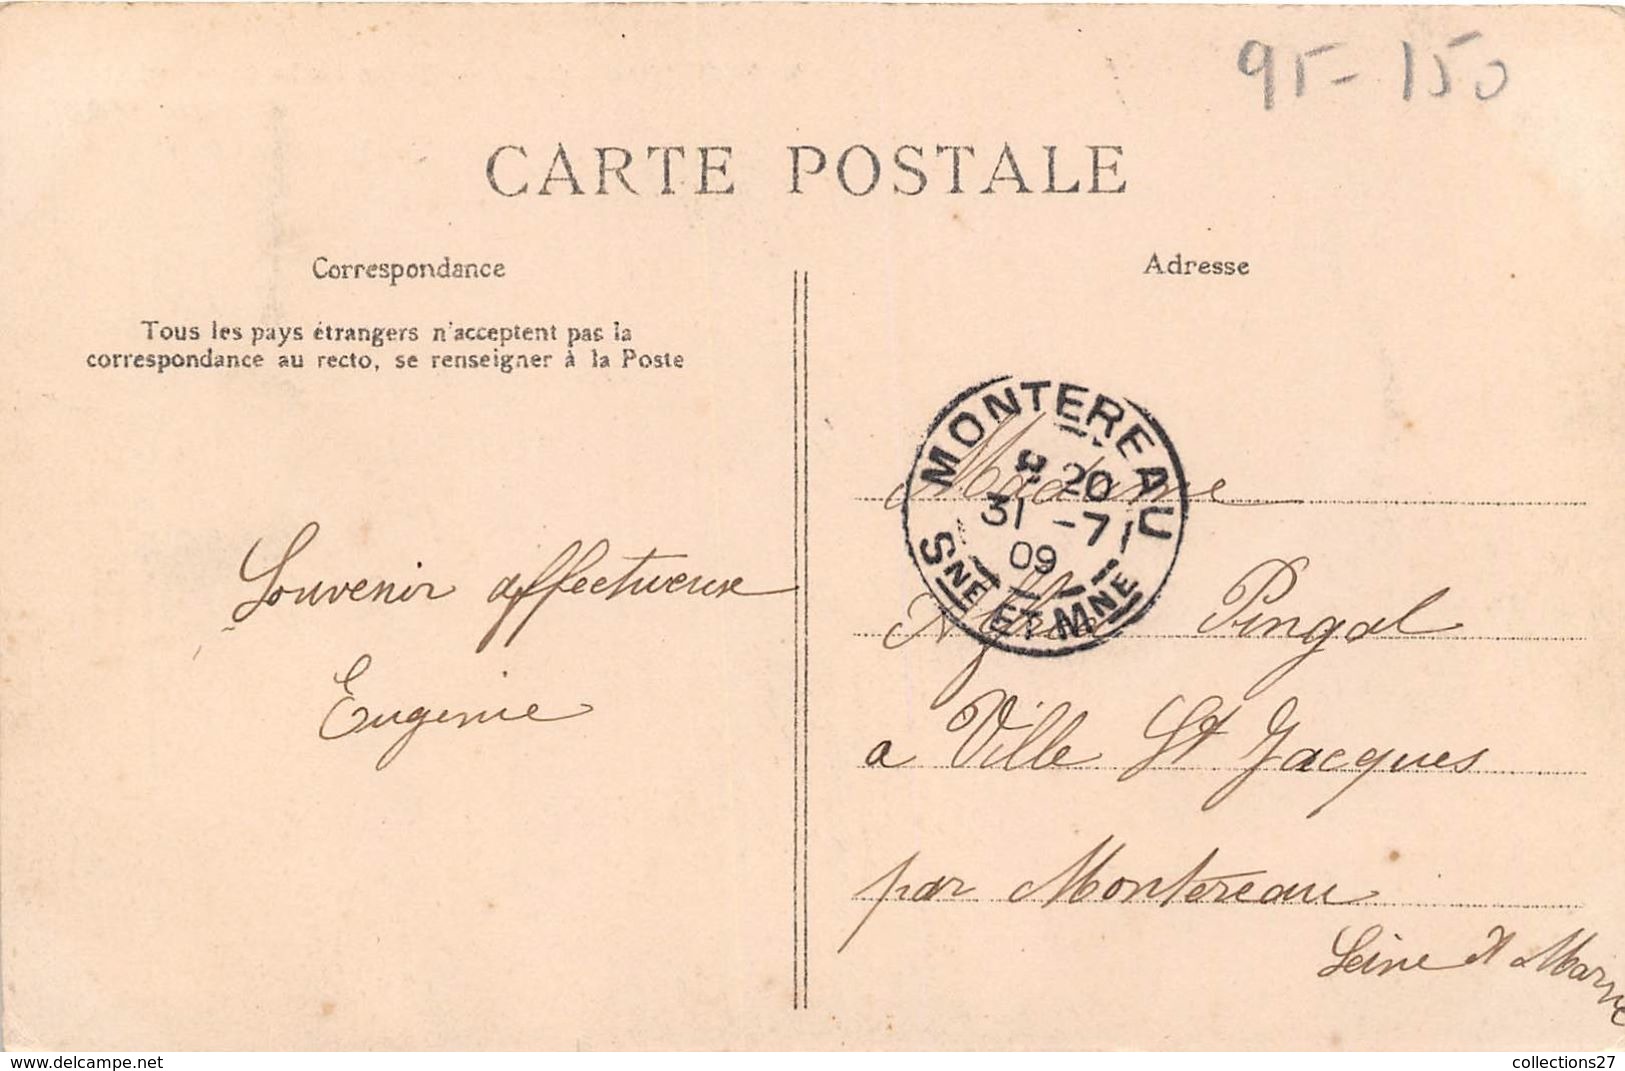 95-150
CARTE POSTALE
Correspondance
Tous les pays étrangers n'acceptent pas la
correspondance au recto, se renseigner à la Poste
Souvenir affectueux
Eugenie
Adresse
MONTEREAU
20
31 -7
09
SNE ET MNE
Madame
Pingal
a Ville St Jacques
par Montereau
Seine et Marne
collections27